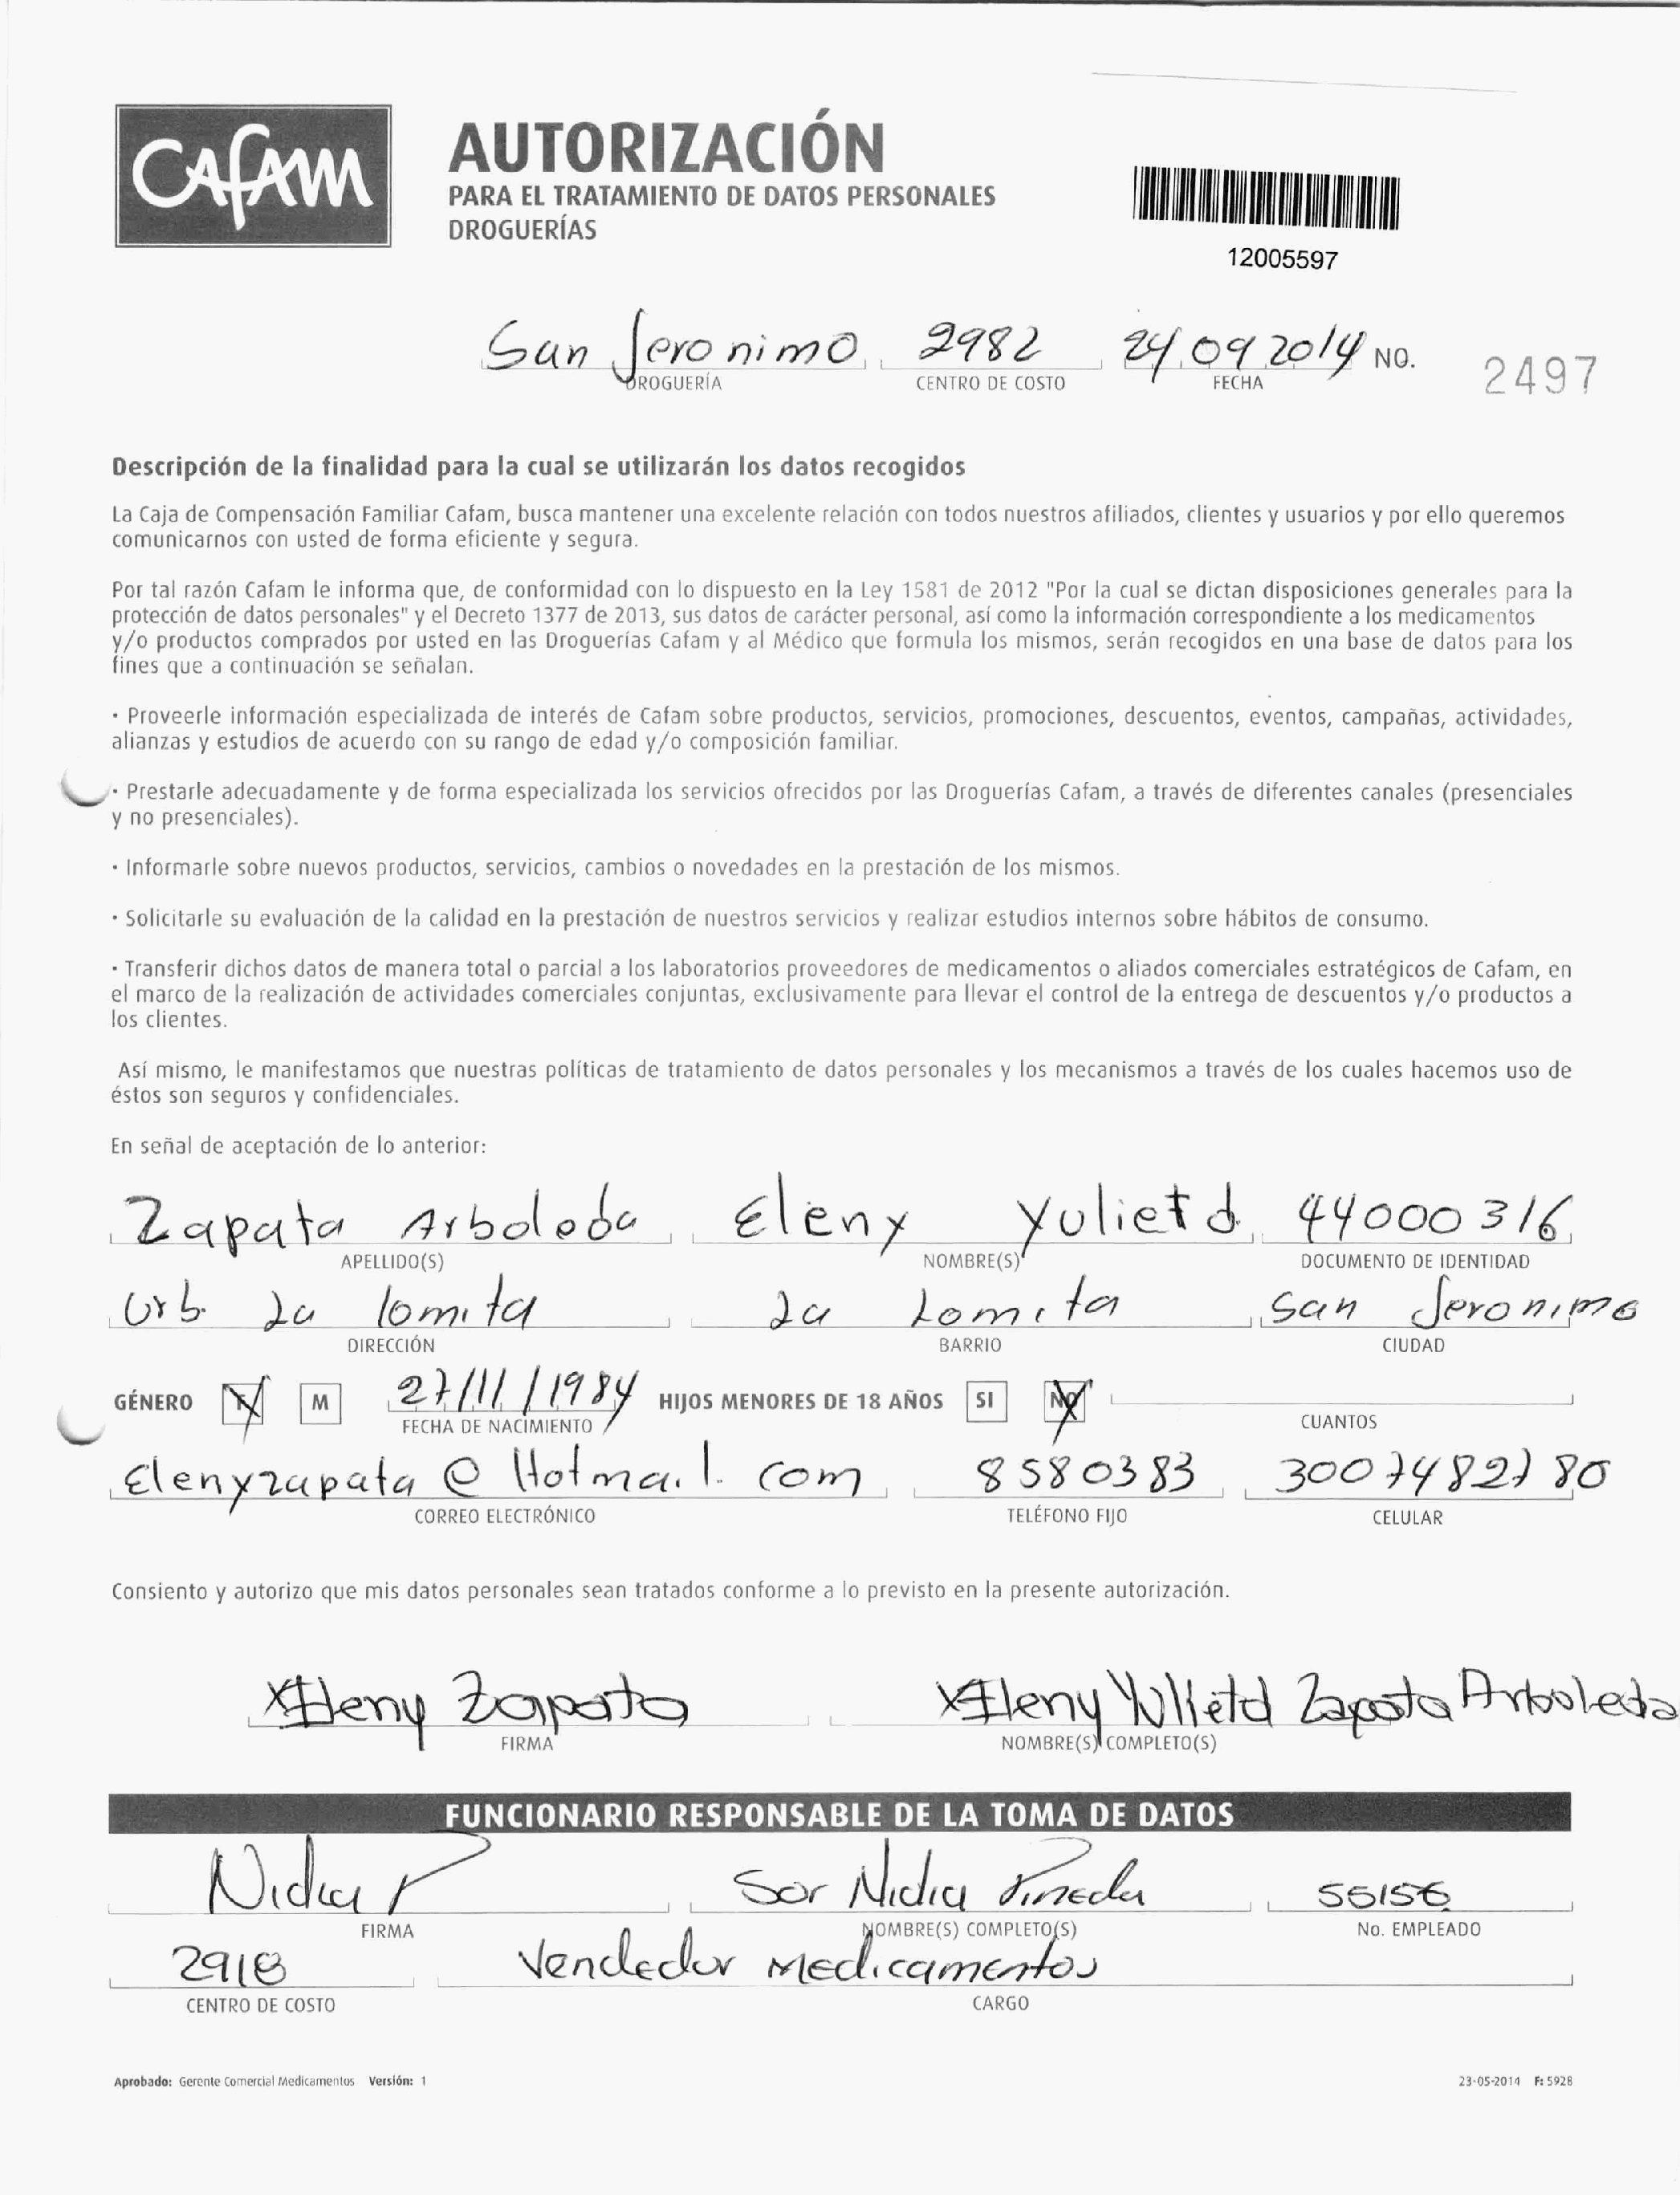 Cafam
AUTORIZACIÓN
PARA EL TRATAMIENTO DE DATOS PERSONALES
DROGUERÍAS
12005597
San Jeronimo 2982 24 09 2014 NO. 2497
DROGUERÍA CENTRO DE COSTO FECHA
Descripción de la finalidad para la cual se utilizarán los datos recogidos
La Caja de Compensación Familiar Cafam, busca mantener una excelente relación con todos nuestros afiliados, clientes y usuarios y por ello queremos
comunicarnos con usted de forma eficiente y segura.
Por tal razón Cafam le informa que, de conformidad con lo dispuesto en la Ley 1581 de 2012 "Por la cual se dictan disposiciones generales para la
protección de datos personales" y el Decreto 1377 de 2013, sus datos de carácter personal, así como la información correspondiente a los medicamentos
y/o productos comprados por usted en las Droguerías Cafam y al Médico que formula los mismos, serán recogidos en una base de datos para los
fines que a continuación se señalan.
· Proveerle información especializada de interés de Cafam sobre productos, servicios, promociones, descuentos, eventos, campañas, actividades,
alianzas y estudios de acuerdo con su rango de edad y/o composición familiar.
· Prestarle adecuadamente y de forma especializada los servicios ofrecidos por las Droguerías Cafam, a través de diferentes canales (presenciales
y no presenciales).
· Informarle sobre nuevos productos, servicios, cambios o novedades en la prestación de los mismos.
· Solicitarle su evaluación de la calidad en la prestación de nuestros servicios y realizar estudios internos sobre hábitos de consumo.
· Transferir dichos datos de manera total o parcial a los laboratorios proveedores de medicamentos o aliados comerciales estratégicos de Cafam, en
el marco de la realización de actividades comerciales conjuntas, exclusivamente para llevar el control de la entrega de descuentos y/o productos a
los clientes.
Así mismo, le manifestamos que nuestras políticas de tratamiento de datos personales y los mecanismos a través de los cuales hacemos uso de
éstos son seguros y confidenciales.
En señal de aceptación de lo anterior:
Zapata Arboleda Eleny Yulietd 44000316
APELLIDO(S) NOMBRE(S) DOCUMENTO DE IDENTIDAD
Urb. La lomita La Lomita San Jeronimo
DIRECCIÓN BARRIO CIUDAD
GÉNERO M 27/11/1984 HIJOS MENORES DE 18 AÑOS SI NO
FECHA DE NACIMIENTO CUANTOS
Elenyzapata@Hotmail.com 8580383 3007482780
CORREO ELECTRÓNICO TELÉFONO FIJO CELULAR
Consiento y autorizo que mis datos personales sean tratados conforme a lo previsto en la presente autorización.
X Eleny Zapata X Eleny Yulietd Zapata Arboleda
FIRMA NOMBRE(S) COMPLETO(S)
FUNCIONARIO RESPONSABLE DE LA TOMA DE DATOS
Nidia P Sor Nidia Pineda 55156
FIRMA NOMBRE(S) COMPLETO(S) No. EMPLEADO
2918 Vendedor Medicamentos
CENTRO DE COSTO CARGO
Aprobado: Gerente Comercial Medicamentos Versión: 1 23-05-2014 F: 5928